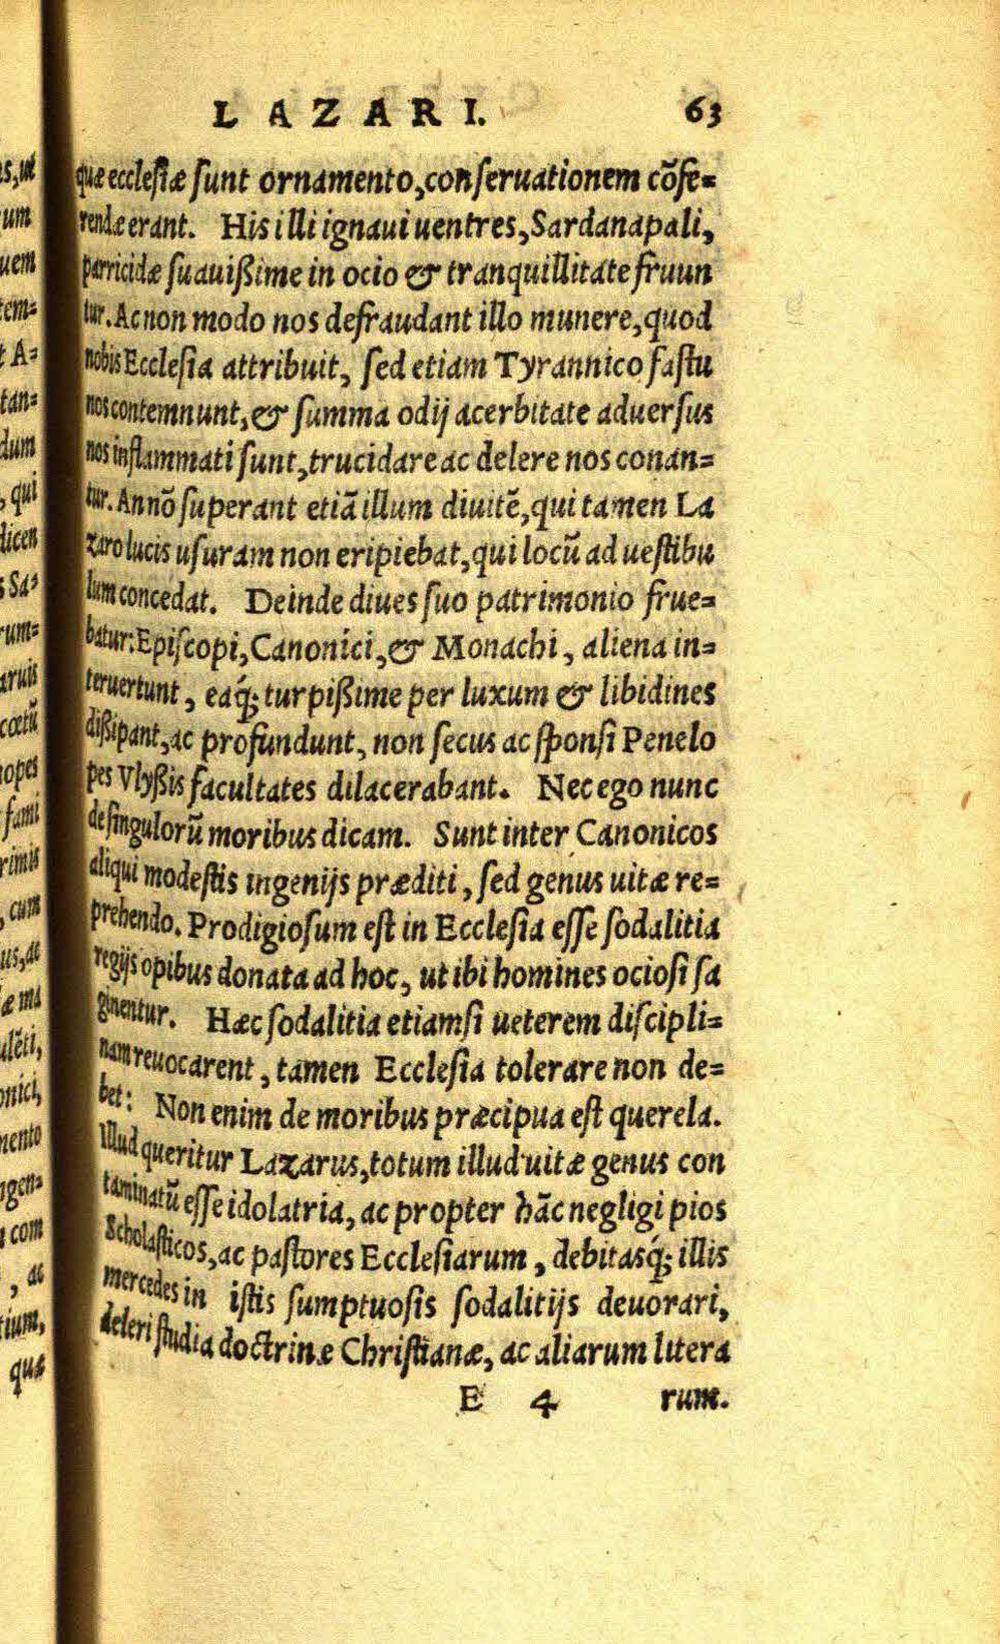 LAZARI. 63
quæ ecclesiæ sunt ornamento, conseruationem cõfe=
rendæ erant. His illi ignaui uentres, Sardanapali,
parricidæ suauißime in ocio & tranquillitate fruun
tur. Ac non modo nos defraudant illo munere, quod
nobis Ecclesia attribuit, sed etiam Tyrannico fastu
nos contemnunt, & summa odij acerbitate aduersus
nos inflammati sunt, trucidare ac delere nos conan=
tur. Annõ superant etiã illum diuitẽ, qui tamen La
zaro lucis usuram non eripiebat, qui locũ ad uestibu
lum concedat. Deinde diues suo patrimonio frue=
batur: Episcopi, Canonici, & Monachi, aliena in=
teruertunt, eaq́; turpißime per luxum & libidines
dißipant, ac profundunt, non secus ac sponsi Penelo
pes Vlyßis facultates dilacerabant. Nec ego nunc
de singulorũ moribus dicam. Sunt inter Canonicos
aliqui modestis ingenijs præditi, sed genus uitæ re=
prehendo. Prodigiosum est in Ecclesia esse sodalitia
regijs opibus donata ad hoc, ut ibi homines ociosi sa
ginentur. Hæc sodalitia etiamsi ueterem discipli=
nam reuocarent, tamen Ecclesia tolerare non de=
bet: Non enim de moribus præcipua est querela.
Illud queritur Lazarus, totum illud uitæ genus con
taminatũ esse idolatria, ac propter hãc negligi pios
Scholasticos, ac pastores Ecclesiarum, debitasq́; illis
mercedes in istis sumptuosis sodalitijs deuorari,
deleri studia doctrinæ Christianæ, ac aliarum litera
E 4 rum.